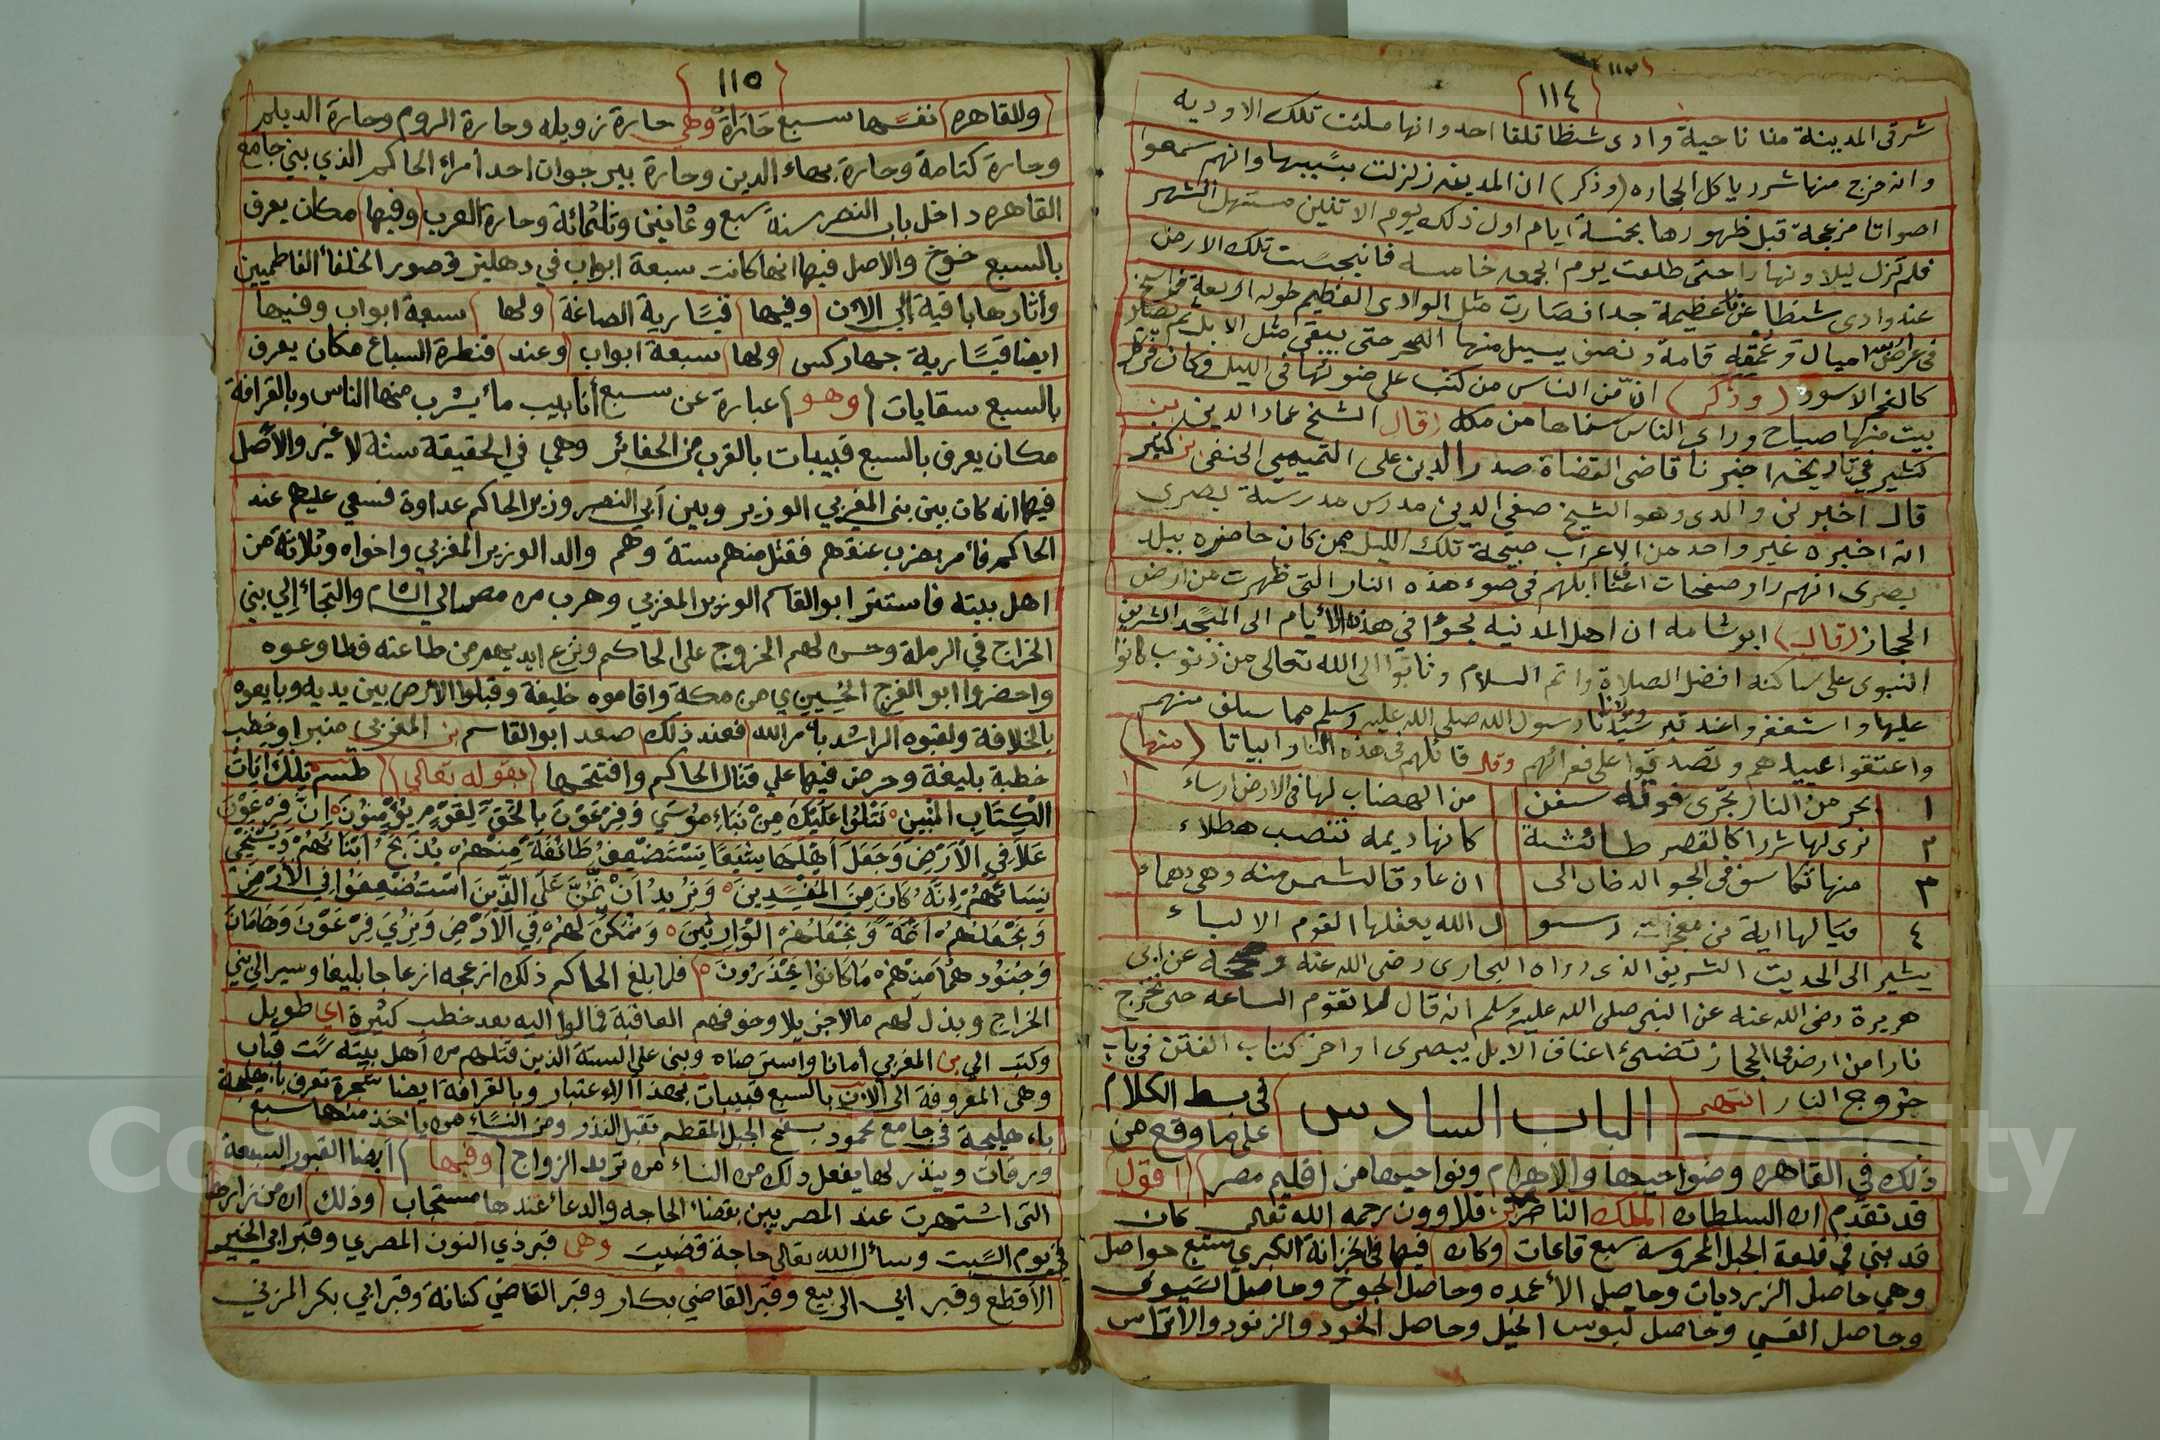 ١١٤
شرقى المدينة منا ناحية وادى شنظا تلقا احد وانها ملئت تلك الاوديه
وانه خرج منها شرر ياكل الحجاره (وذكر) ان المدينه زلزلت بسببها وانهم سمعوا
اصواتا مزعجة قبل ظهورها بخمسة ايام اول ذلك يوم الاثنين مستهل الشهر
فلم تزل ليلا ونهارا حتى طلعت يوم الجمعه خامسه فانبجست تلك الارض
عند وادى شنظا عن نار عظيمة جدا فصارت مثل الوادى العظيم طوله اربعة فراسخ
فى عرض اربعة اميال وعمقه قامة ونصف يسيل منها الصخر حتى يبقى مثل الابل ثم يصير
كالفحم الاسود (وذكر) ان من الناس من كتب على ضوئها فى الليل وكان فى كل
بيت منها مصباح وراى الناس سناها من مكه (قال) الشيخ عماد الدين بن
كثير فى تاريخه اخبرنا قاضى القضاة صدر الدين على التميمى الحنفى
قال اخبرنى والدى وهو الشيخ صفى الدين مدرس مدرسة بصرى
انه اخبره غير واحد من الاعراب صبيحة تلك الليل ممن كان حاضره ببلد
بصرى انهم راو صفحات اعناق ابلهم فى ضوء هذه النار التى ظهرت من ارض
الحجاز (قال) ابو شامه ان اهل المدنيه لجوا فى هذه الأيام الى المسجد الشريف
النبوى على ساكنه افضل الصلاة واتم السلام وتابوا الى الله تعالى من ذنوب كانوا
عليها واستغفروا عند قبر سيدنا ومولانا رسول الله صلى الله عليه وسلم مما سلف منهم
واعتقوا عبيدهم وتصدقوا على فقرائهم وقال قائلهم فى هذه النار ابياتا (منها)
١ بحر من النار تجرى فوقه سفن من الهضاب لها فى الارض ارساء
٢ ترى لها شررا كالقصر طائشة كانها ديمه تنصب هطلاء
٣ منها تكاسف فى الجو الدخان الى ان عادة الشمس منه وهى دهماء
٤ فيا لها اية من معجزات رسو ل الله يعقلها القوم الالباء
يشير الى الحديت الشريف الذى رواه البخارى رضى الله عنه عن ابى
هريرة رضى الله عنه عن النبى صلى الله عليه وسلم انه قال لا تقوم الساعه حتى تخرج
نارا من ارض الحجاز تضئ اعناق الابل ببصرى اواخر كتاب الفتن فى باب
خروج النار انتهى الباب السادس فى بسط الكلام
على ما وقع من
ذلك فى القاهره وضواحيها والاهرام ونواحيها من اقليم مصر (اقول)
قد تقدم ان السلطان الملك الناصر بن قلاوون رحمه الله تعالى كان
قد بنى فى قلعة الجبل المحروسه سبع قاعات وكان فيها فى الخزانة الكبرى سبع حواصل
وهى حاصل الزرديات وحاصل الأعمده وحاصل الجوخ وحاصل السيوف
وحاصل القسي وحاصل لبوس الخيل وحاصل الخود والزنود والاتراس
١١٥
وللقاهره نفسها سبع حارات وهى حارة زويله وحارة الروم وحارة الديلم
وحارة كتامة وحارة بهاء الدين وحارة بيرجوان احد أمراء الحاكم الذي بني جامع
القاهره داخل باب النصر سنة سبع وثمانين وثلثمائة وحارة العرب وفيها مكان يعرف
بالسبع خوخ والاصل فيها انها كانت سبعة ابواب في دهليز قصور الخلفاء الفاطميين
وأثارها باقية إلى الآن وفيها قيسارية الصاغة ولها سبعة ابواب وفيها
ايضا قيسارية جهاركس ولها سبعة ابواب وعند قنطرة السباع مكان يعرف
بالسبع سقايات وهو عبارة عن سبع أنابيب ماء يشرب منها الناس وبالقرافة
مكان يعرف بالسبع قبيبات بالقرب من الحفائر وهي في الحقيقة ستة لا غير والأصل
فيها انه كان بين بني المغربي الوزير وبين أبى النصر وزير الحاكم عداوة فسعي عليهم عند
الحاكم فأمر بضرب عنقهم فقتل منهم ستة وهم والد الوزير المغربي واخواه وثلاثة من
اهل بيته فاستتر ابو القاسم الوزير المغربي وهرب من مصر إلي الشام والتجاء إلي بني
الخراج في الرملة وحسن لهم الخروج على الحاكم ونزع ايديهم من طاعته فطاوعوه
واحضروا ابو الفرج الحسيني من مكة واقاموه خليفة وقبلوا الأرض بين يديه وبايعوه
بالخلافة ولقبوه الراشد بأمر الله فعند ذلك صعد ابو القاسم بن المغربي منبرا وخطب
خطبة بليغة وحرض فيها علي قتال الحاكم وافتتحها بقوله تعالي طسم تلك ايات
الكتاب المبين نتلوا عليك من نباء موسي وفرعون بالحق لقوم يؤمنون ان فرعون
علا في الأرض وجعل اهلها شيعا يستضعف طائفة منهم يذبح ابنائهم ويستحي
نسائهم انه كان من المفسدين ونريد ان نمن على الذين استضعفوا في الأرض
ونجعلهم ائمة ونجعلهم الوارثين ونمكن لهم في الأرض ونري فرعون وهامان
وجنودهما منهم ما كانوا يحذرون فلما بلغ الحاكم ذلك انزعجه انزعاجا بليغا وسير الي بني
الخراج وبذل لهم مالا جزيلا وخوفهم العاقبة فمالوا اليه بعد خطب كثيرة اي طويل
وكتب الي بن المغربي أمانا واسترضاه وبنى على الستة الذين قتلهم من أهل بيته ست قباب
وهى المعروفة الى الآن بالسبع قبيبات بهذا الاعتبار وبالقرافة ايضا شجرة تعرف باهليجة
باهليجة فى جامع محمود بسفح الجبل المقطم تقبل النذر ومن النساء من ياخذ منها سبع
ورقات وينذر لها يفعل ذلك من النساء من تريد الزواج وفيها أيضا القبور السبعة
التى اشتهرت عند المصريين بقضاء الحاجه والدعاء عندها مستجاب وذلك ان من زارها
في يوم السبت وسأل الله تعالي حاجة قضيت وهى قبر ذي النون المصري وقبر ابي الخير
الأقطع وقبر ابى الربيع وقبر القاضي بكار وقبر القاضي كنانة وقبر ابي بكر المزني
Copyright © King Saud University